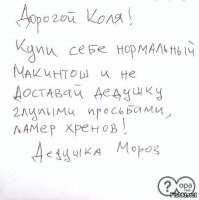 Дорогой Коля!
Купи себе нормальный
Макинтош и не
доставай дедушку
глупыми просьбами,
ламер хренов!
Дедушка Мороз